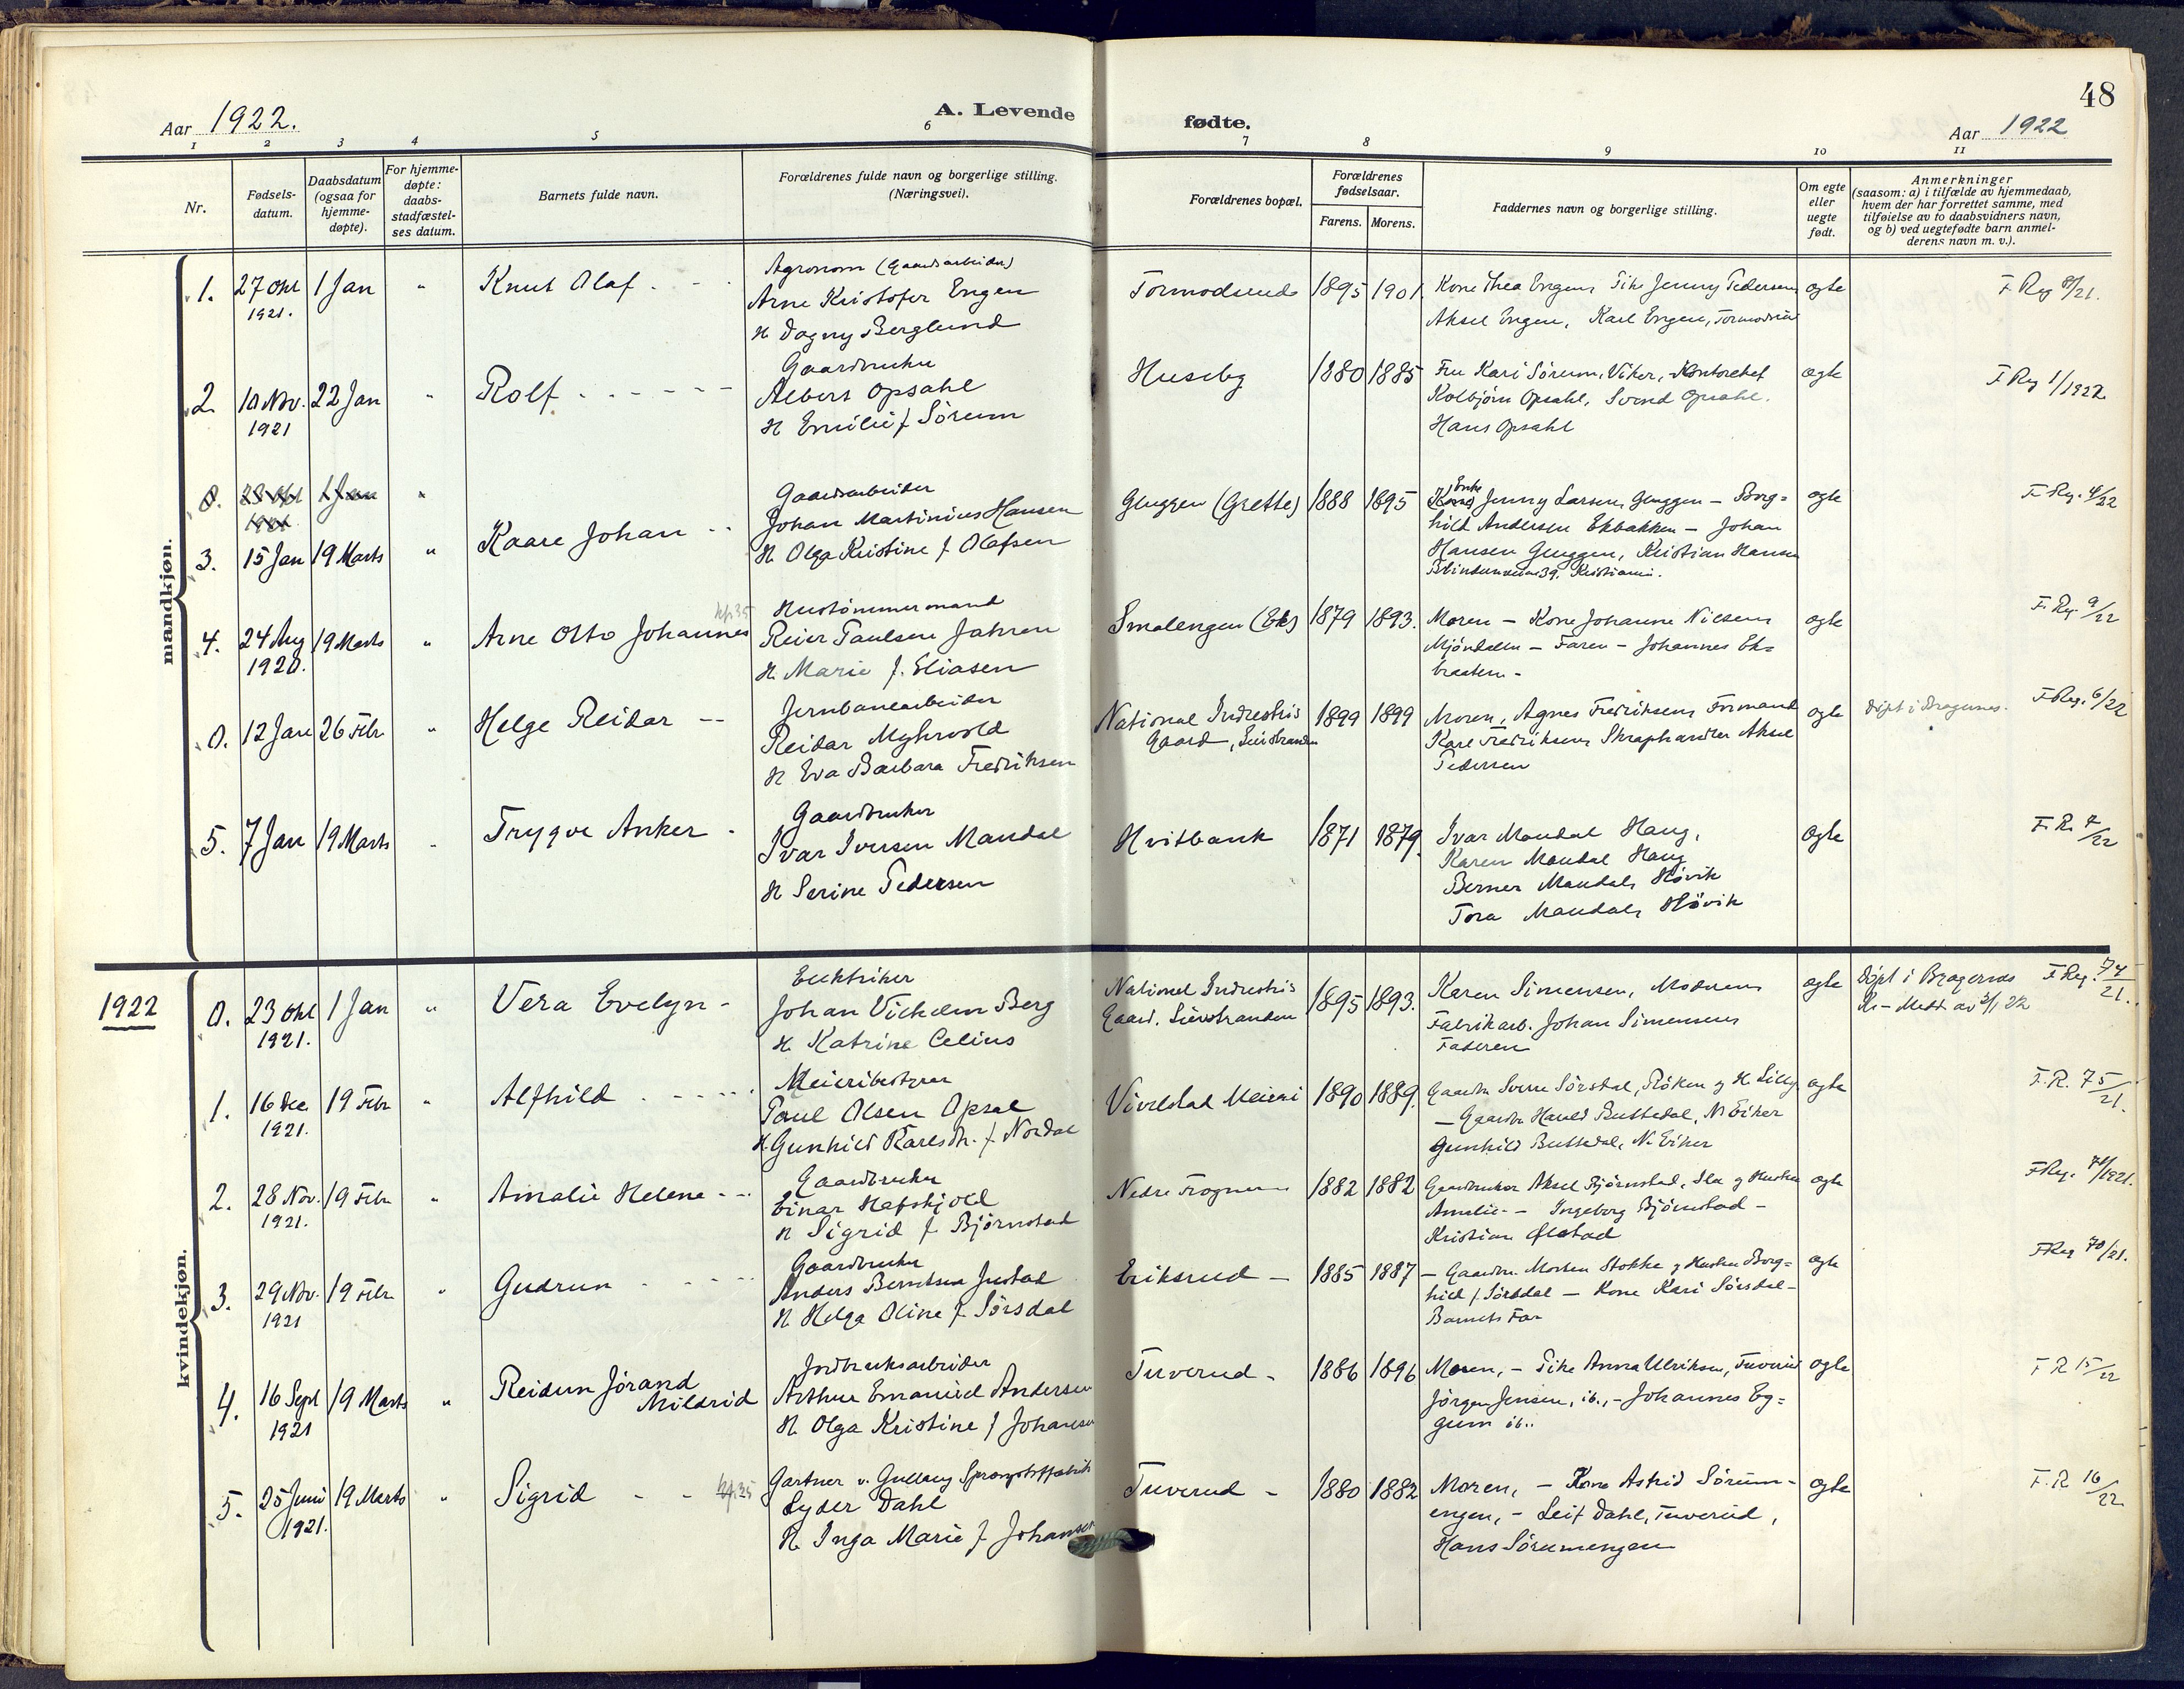 48
Aar 1922.
A. Levende fødte.
Aar 1922
1 2 3 4 5 6 7 8 9 10 11
Nr.
Fødsels-
datum.
Daabsdatum
(ogsaa for
hjemme-
døpte).
For hjemme-
døpte:
daabs-
stadfæstel-
ses datum.
Barnets fulde navn.
Forældrenes fulde navn og borgerlige stilling.
(Næringsvei).
Forældrenes bopæl.
Forældrenes
fødselsaar.
Farens. Morens.
Faddernes navn og borgerlige stilling.
Om egte
eller
uegte
født.
Anmerkninger
(saasom: a) i tilfælde av hjemmedaab,
hvem der har forrettet samme, med
tilføielse av to daabsvidners navn,
og b) ved uegtefødte barn anmel-
derens navn m. v.).
mandkjøn.
1. 27 Okt 1921. 1 Jan " Knut Olaf
Agronom (Gaardsarbeider)
Arne Kristofer Engen
H. Dagny Berglund
Tormodsrud 1895 1901.
Kone Thea Engen, Pike Jenny Pedersen
Aksel Engen, Karl Engen, Tormodsrud
egte
F. Reg /21.
2. 10 Nov. 1921 22 Jan " Rolf
Gaardbruker
Albert Opsahl
H Emilie f Sørum
Huseby 1880 1885
Fru Kari Sørum, Viker, Kontorchef
Kolbjørn Opsahl, Svend Opsahl.
Hans Opsahl
egte
F Reg 1/1922.
0. 23 Okt 1921 1 Jan "
3. 15 Jan 19 Marts " Kaare Johan
Gaardsarbeider
Johan Martinius Hansen
H. Olga Kristine f. Olafsen
Gluggen (Grette) 1888 1895
Enke
Kone Jenny Larsen, Gluggen - Borg=
hild Andersen Ekbakken - Johan
Hansen Gluggen, Kristian Hansen
39, Kristiania.
egte
F. Reg. 4/22
4. 24 Aug 1920. 19 Marts " Arne Otto Johannes
Hustømmermand
Reier Paulsen Jahren
H. Marie f. Eliasen
Smalengen (Ek) 1879 1893.
Moren - Kone Johanne Nielsen,
Mjøndalen - Faren - Johannes Ek=
braaten -
egte
F. Reg. 9/22
0. 12 Jan 26 Febr " Helge Reidar
Jernbanearbeider
Reidar Myhrvold
H Eva Barbara Fredriksen
National Industris
Gaard, Lierstranden 1899 1899
Moren, Agnes Fredriksen, Formand
Karl Fredriksen, Skraphandler Aksel
Pedersen
egte
Døpt i Bragernes.
F. Reg. 6/22
5. 7 Jan 19 Marts " Trygve Anker
Gaardbruker
Ivar Iversen Mandal
H Serine Pedersen
Hvitbank 1871 1879.
Ivar Mandal Haug,
Karen Mandal Haug
Berner Mandal, Høvik
Tora Mandal, Høvik
egte
F. R. 7/22
1922
kvindekjøn.
0. 23 Okt 1921. 1 Jan " Vera Evelyn
Elektriker
Johan Vilhelm Berg
H. Katrine Celius
National Industris
Gaard. Lierstranden 1895 1893.
Karen Simensen, Moderen
Fabrikarb. Johan Simensen
Faderen
egte
Døpt i Bragernes
F. Reg. 74/21.
1. 16 Dec 1921. 19 Febr " Alfhild
Meieribestyrer
Paul Olsen Opsal
H. Gunhild Karlsdtr. f. Nordal
Vivelstad Meieri 1890 1889.
Gaardbr. Sverre Sørsdal, Røken og H. Lilly
- Gaardbr. Harald Buttedal, N Eiker
Gunhild Buttedal, N. Eiker
egte
F. R. 75/21.
2. 28 Nov. 1921. 19 Febr " Amalie Helene
Gaardbruker
Einar Hafskjold
H Sigrid f. Bjørnstad
Nedre Frogner 1882 1882
Gaardbruker Aksel Bjørnstad, og Hustru
Amalie - Ingeborg Bjørnstad -
Kristian Ølstad
egte
F Reg. /1921.
3. 29 Nov. 1921 19 Febr " Gudrun
Gaardbruker
Anders Berntsen Justad
H. Helga Oline f. Sørsdal
Eriksrud - 1885 1887
- Gaardbr. Morten Stokke og Hustru Borg=
hild f. Sørsdal - Kone Kari Sørsdal -
Barnets Far
egte
F Reg 70/21.
4. 16 Sept 1921 19 Marts " Reidun Jørand
Mildrid
Jordbruksarbeider
Arthur Emanuel Andersen
H. Olga Kristine f Johansen
Tuverud - 1886 1896
Moren, - Pike Anna Ulriksen, Tuverud
Jørgen Jensen, ib., - Johannes Eg=
gum ib..
egte
F R 15/22
5. 25 Juni 1921. 19 Marts " Sigrid
Gartner v. Gullaug Sprængstoffabrik
Lyder Dahl
H. Inga Marie f Johansen
Tuverud - 1880 1882
Moren, - Kone Astrid Sørum-
engen, - Leif Dahl, Tuverud,
Hans Sørumengen
egte
F. R 16/22